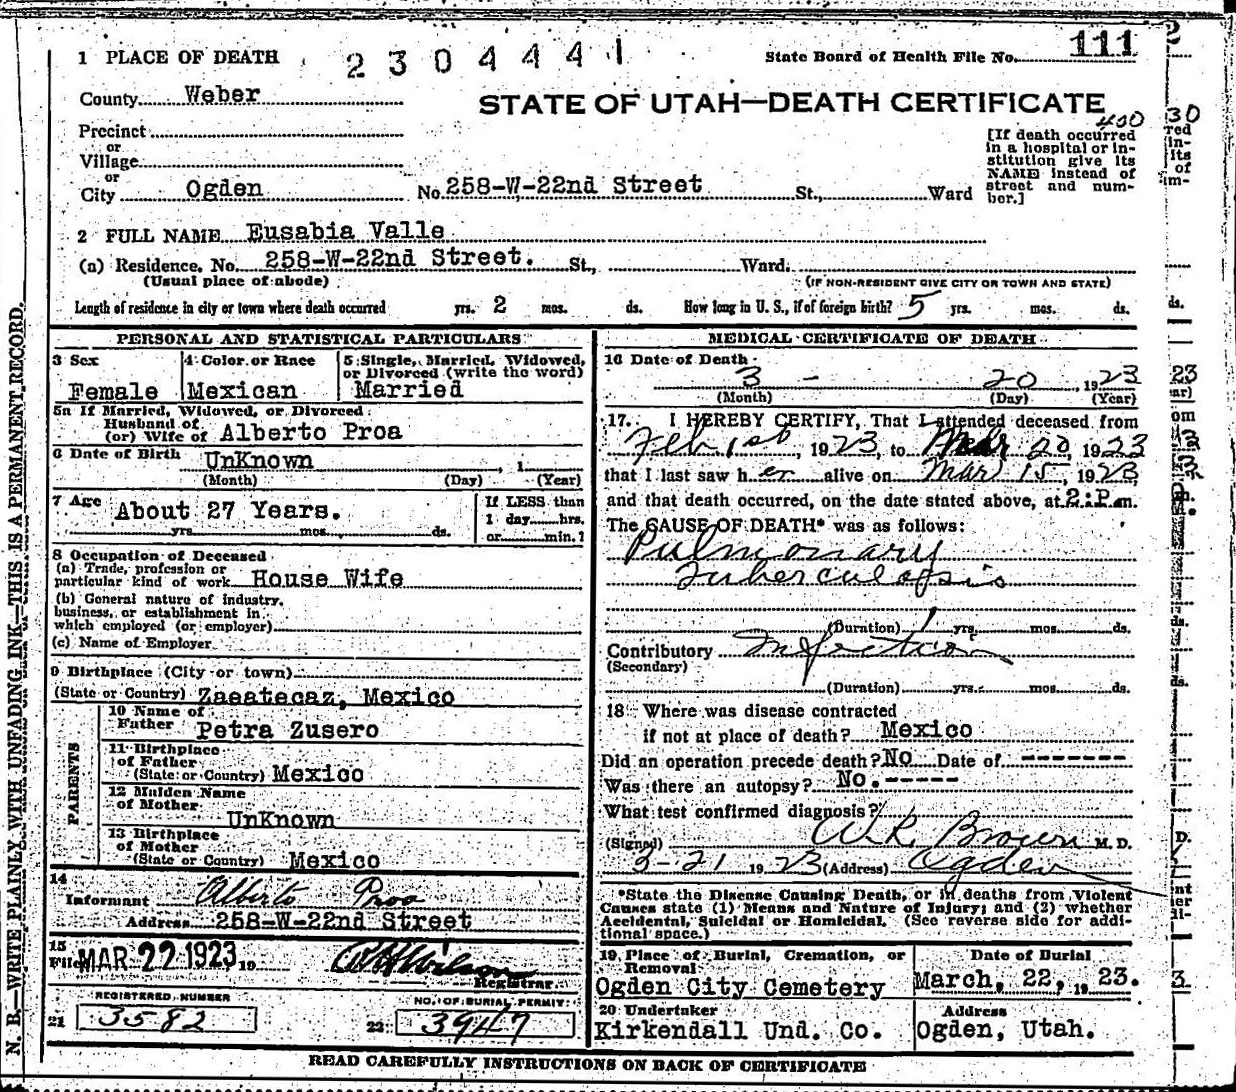 1 PLACE OF DEATH 2 3 0 4 4 4 1 State Board of Health File No. 111
County Weber
STATE OF UTAH—DEATH CERTIFICATE
400
Precinct
or
Village
or
City Ogden No. 258-W-22nd Street St., Ward
[If death occurred
in a hospital or in-
stitution give its
NAME instead of
street and num-
ber.]
2 FULL NAME Eusabia Valle
(a) Residence. No. 258-W-22nd Street. St., Ward.
(Usual place of abode) (IF NON-RESIDENT GIVE CITY OR TOWN AND STATE)
Length of residence in city or town where death occurred yrs. 2 mos. ds. How long in U. S., if of foreign birth? 5 yrs. mos. ds.
PERSONAL AND STATISTICAL PARTICULARS
3 Sex
Female
4 Color or Race
Mexican
5 Single, Married, Widowed,
or Divorced (write the word)
Married
5a If Married, Widowed, or Divorced
Husband of
(or) Wife of Alberto Proa
6 Date of Birth UnKnown , 1
(Month) (Day) (Year)
7 Age About 27 Years.
yrs. mos. ds.
If LESS than
1 day hrs.
or min.?
8 Occupation of Deceased
(a) Trade, profession or
particular kind of work House Wife
(b) General nature of industry,
business, or establishment in
which employed (or employer)
(c) Name of Employer
9 Birthplace (City or town)
(State or Country) Zaeatecaz, Mexico
PARENTS
10 Name of
Father Petra Zusero
11 Birthplace
of Father
(State or Country) Mexico
12 Maiden Name
of Mother
UnKnown
13 Birthplace
of Mother
(State or Country) Mexico
14
Informant Alberto Proa
Address 258-W-22nd Street
15
Filed MAR 22 1923, 19
Registrar
REGISTERED NUMBER
21 3582
NO. OF BURIAL PERMIT:
22 3947
MEDICAL CERTIFICATE OF DEATH
16 Date of Death
3 - 20 , 1923
(Month) (Day) (Year)
17. I HEREBY CERTIFY, That I attended deceased from
Feb 1st, 1923, to Mar 20, 1923
that I last saw her alive on Mar 15, 1923
and that death occurred, on the date stated above, at 2:P.m.
The CAUSE OF DEATH* was as follows:
Pulmonary
Tuberculosis
(Duration) 1 yrs. mos. ds.
Contributory Infection
(Secondary)
(Duration) yrs. mos. ds.
18 Where was disease contracted
if not at place of death? Mexico
Did an operation precede death? No Date of -------
Was there an autopsy? No.-----
What test confirmed diagnosis?
(Signed) W.R. Brown M. D.
3-21 1923 (Address) Ogden
*State the Disease Causing Death, or in deaths from Violent
Causes state (1) Means and Nature of Injury; and (2) whether
Accidental, Suicidal or Homicidal. (See reverse side for addi-
tional space.)
19 Place of Burial, Cremation, or
Removal
Ogden City Cemetery
Date of Burial
March, 22, 1923.
20 Undertaker
Kirkendall Und. Co.
Address
Ogden, Utah.
READ CAREFULLY INSTRUCTIONS ON BACK OF CERTIFICATE
N. B.—WRITE PLAINLY WITH UNFADING INK—THIS IS A PERMANENT RECORD.